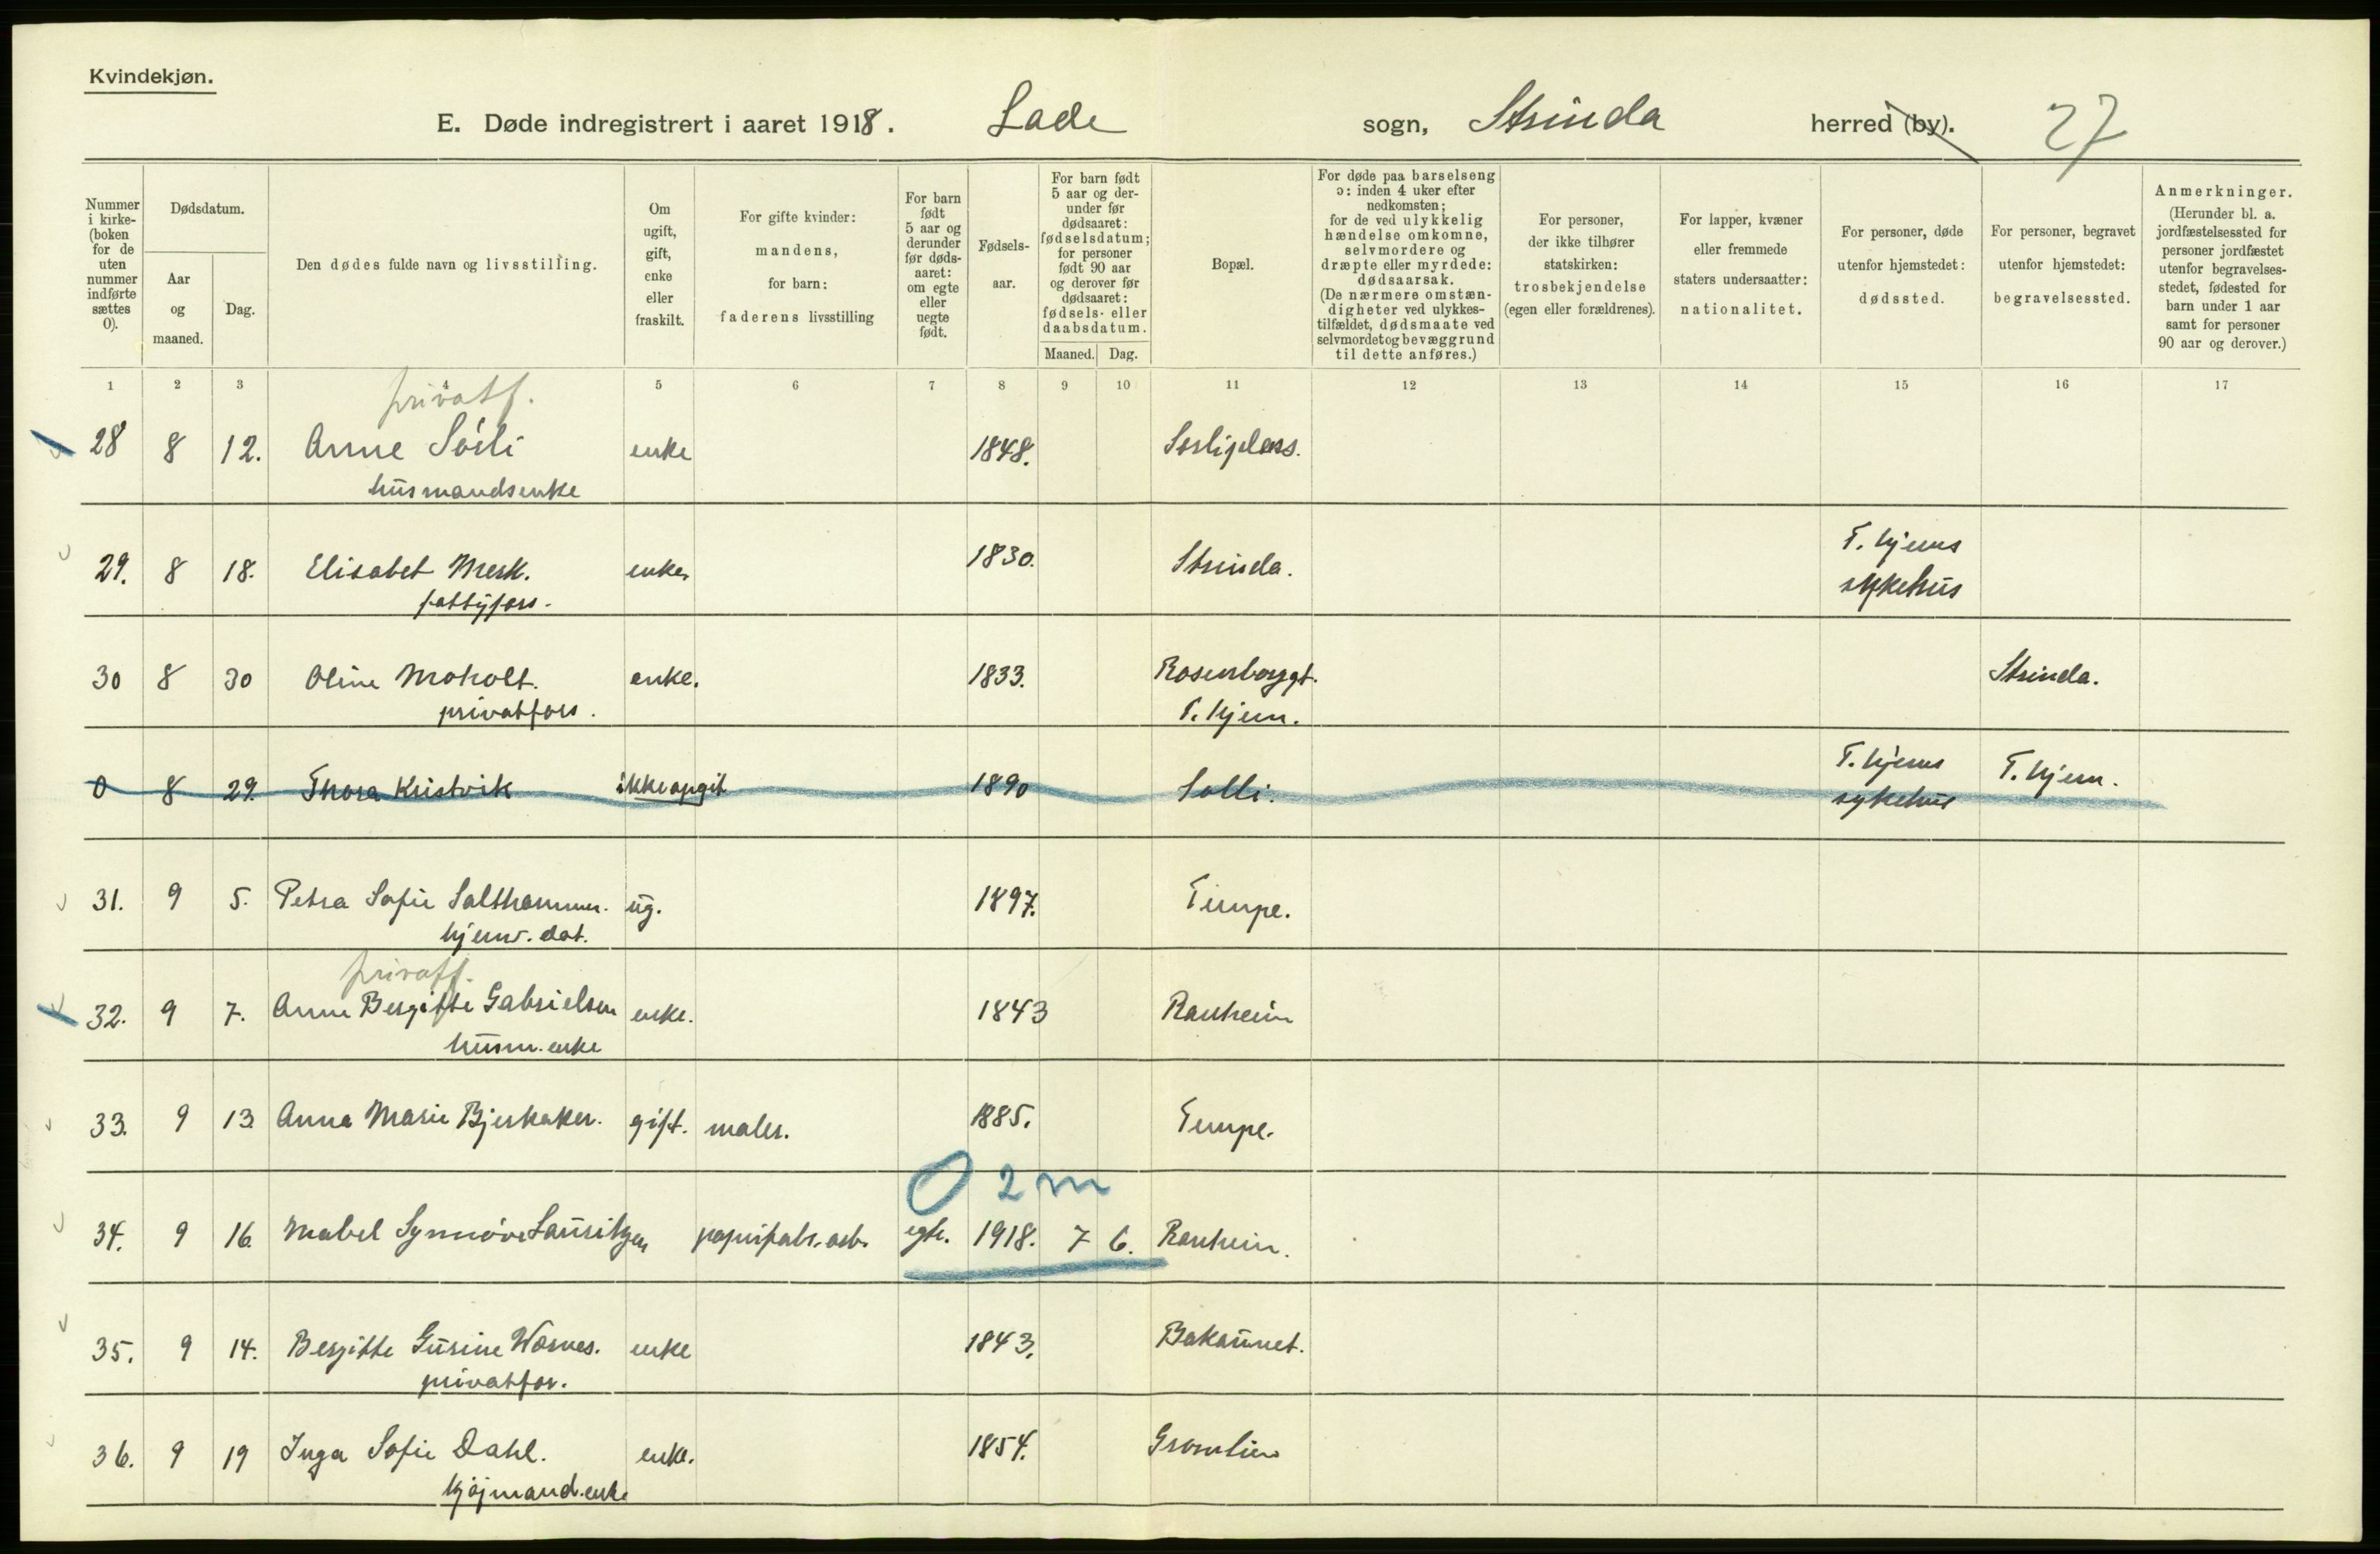 Kvindekjøn.
E. Døde indregistrert i aaret 1918. Lade sogn, Strinda herred (by). 27
Nummer i kirkeboken for de uten nummer indførte sættes 0).
Dødsdatum.
Aar og maaned.
Dag.
Den dødes fulde navn og livsstilling.
Om ugift, gift, enke eller fraskilt.
For gifte kvinder: mandens, for barn: faderens livsstilling
For barn født 5 aar og derunder før dødsaaret: om egte eller uegte født.
Fødselsaar.
For barn født 5 aar og derunder før dødsaaret: fødselsdatum; for personer født 90 aar og derover før dødsaaret: fødsels- eller daabsdatum.
Maaned. Dag.
Bopæl.
For døde paa barselseng ɔ: inden 4 uker efter nedkomsten; for de ved ulykkelig hændelse omkomne, selvmordere og dræpte eller myrdede: dødsaarsak. (De nærmere omstændigheter ved ulykkestilfældet, dødsmaate ved selvmordet og bevæggrund til dette anføres.)
For personer, der ikke tilhører statskirken: trosbekjendelse (egen eller forældrenes).
For lapper, kvæner eller fremmede staters undersaatter: nationalitet.
For personer, døde utenfor hjemstedet: dødssted.
For personer, begravet utenfor hjemstedet: begravelsessted.
Anmerkninger. (Herunder bl. a. jordfæstelsessted for personer jordfæstet utenfor begravelsesstedet, fødested for barn under 1 aar samt for personer 90 aar og derover.)
1 2 3 4 5 6 7 8 9 10 11 12 13 14 15 16 17
privatf.
28 8 12. Anne Sörli enke 1848. Sørliplass.
husmandsenke
29. 8 18. Elisabet Mesk. enke 1830. Strinda. T. hjems sykehus
fattigfors.
30 8 30 Oline Moholt. enke. 1833. Rosenborggt. T. hjem. Strinda.
privatfors.
0 8 29. Thora Kristvik ikke opgit 1890 Solli. T. hjems sykehus T. hjem.
31. 9 5. Petra Sofie Salthammer. ug. 1897. Tempe.
hjemv. dat.
privatf.
32. 9 7. Anne Bergitte Gabrielsen enke. 1843 Ranheim
husm. enke
33. 9 13. Anna Marie Bjerkaker. gift. maler. 1885. Tempe.
0 2 m
34. 9 16. Mabel Synnöve Lauritzen papirfabr. arb. egte. 1918. 7 6. Ranheim.
35. 9 14. Bergitte Gurine Wærnes. enke 1843. Bakaunet.
privatfor.
36. 9 19 Inga Sofie Dahl. enke. 1854. Gromlien
kjøjmand. enke